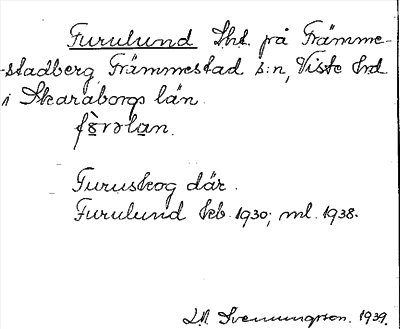 Furulund Sht. på Främme-
stadberg, Främmestad s:n, Viste hrd
i Skaraborgs län.
fò̤rəlan.
Furuskog där.
Furulund kb. 1930; ml. 1938.
Svenungsson. 1939.